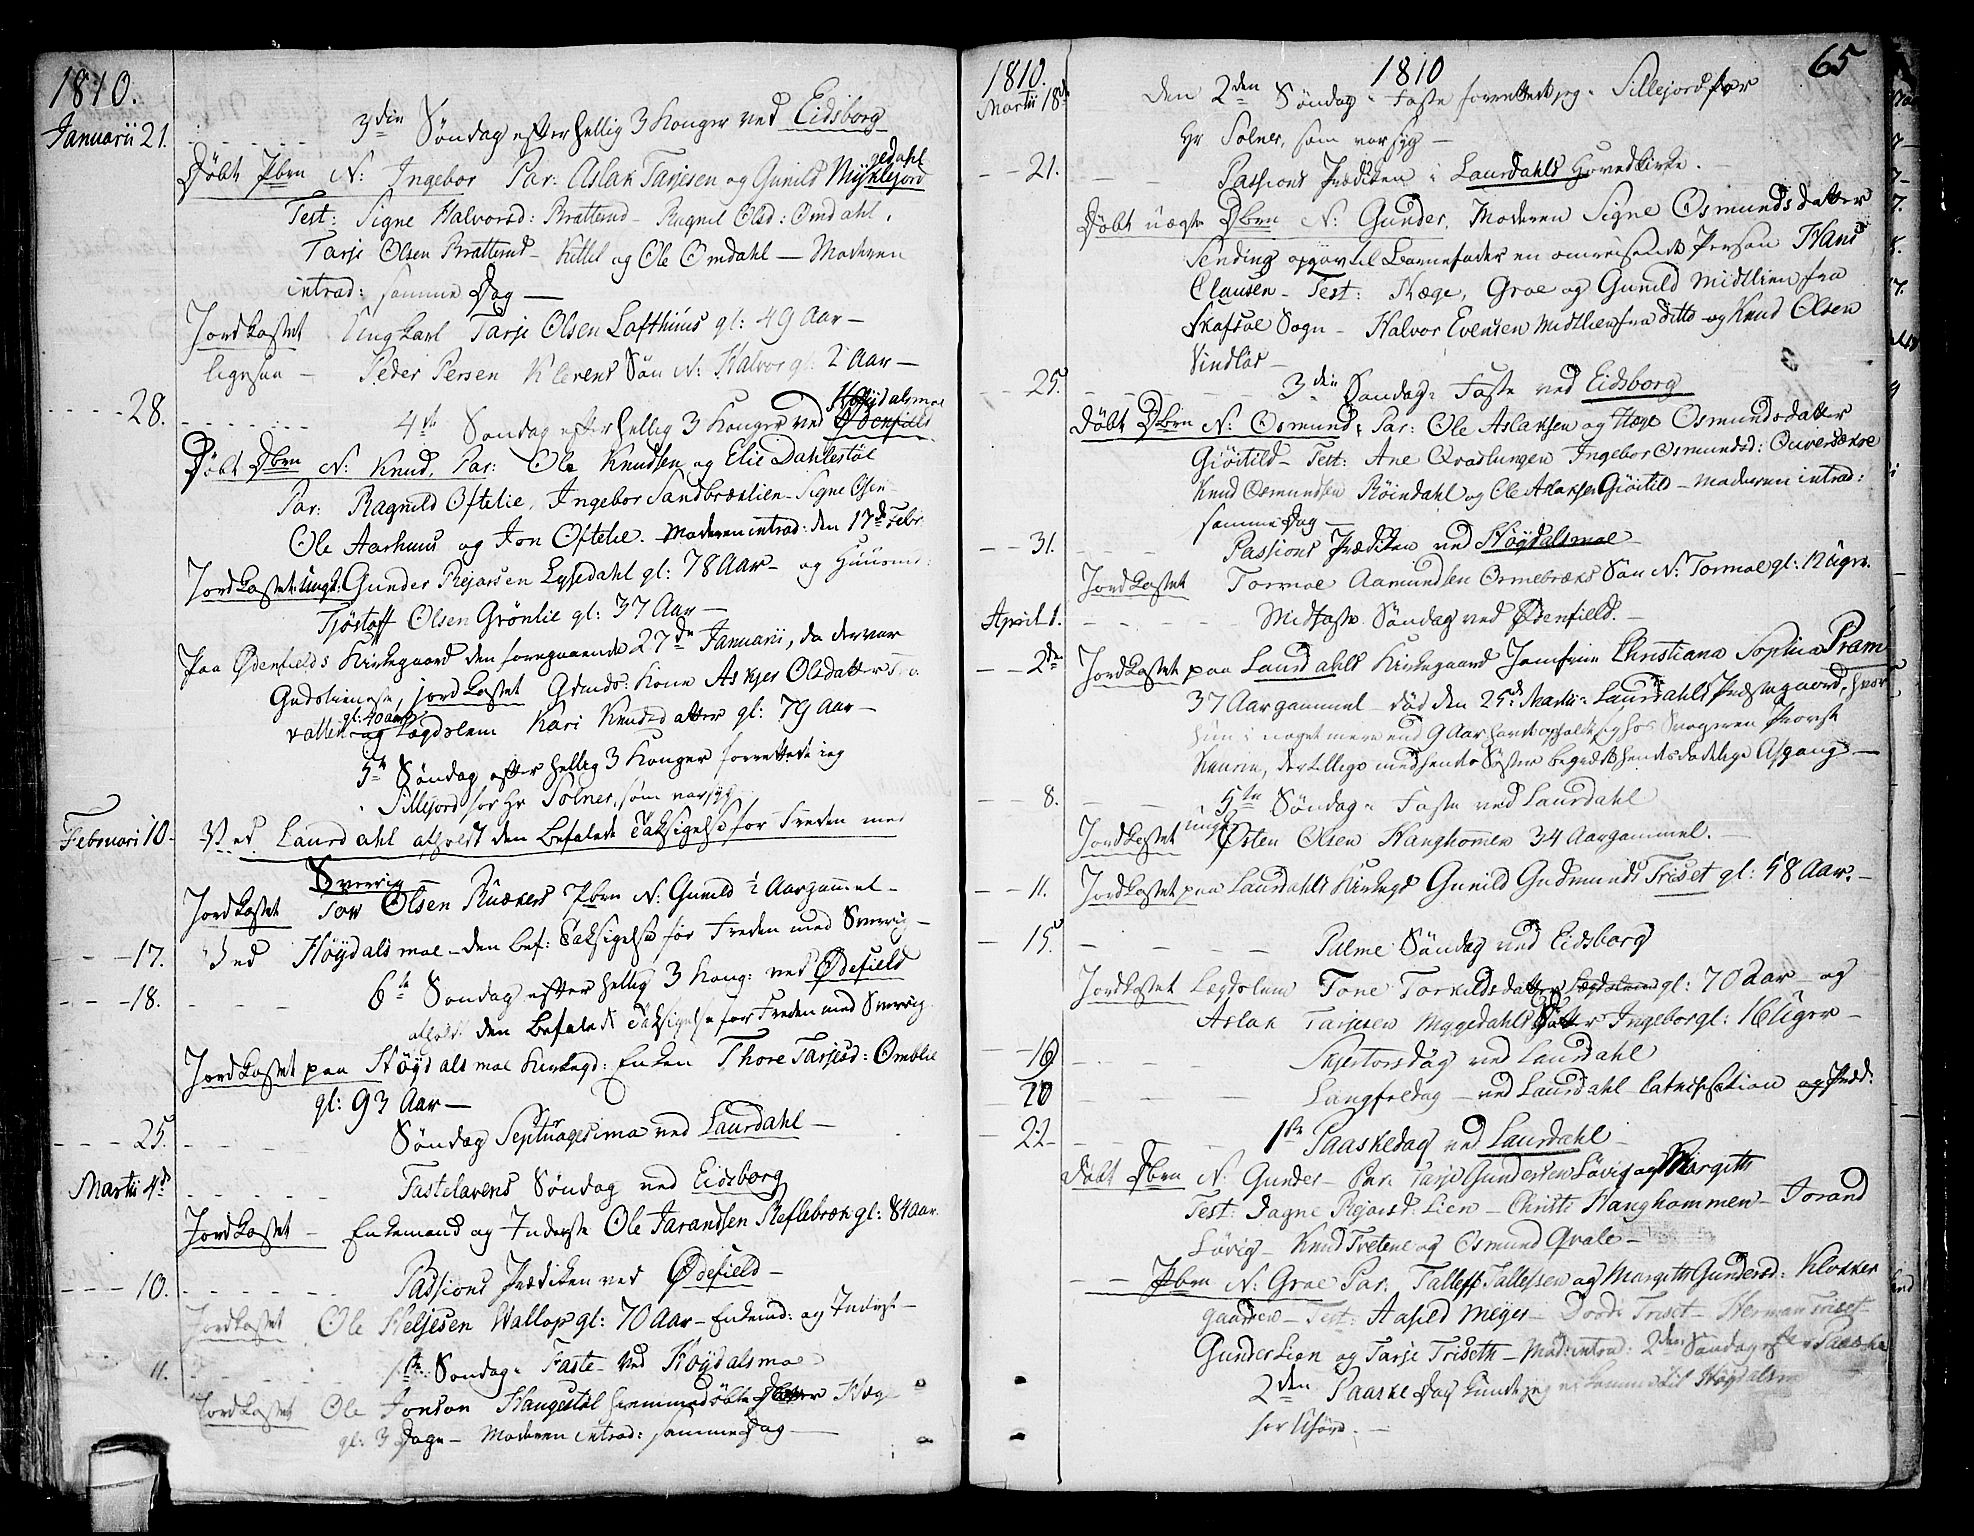 1810.
Januarii 21. 3die Søndag efter Hellig 3 Konger ved Eidsborg
Døbt Pbrn N: Ingebor Par: Aslak Tarjesen og Gunild Myklejord
gedahl
Test: Signe Halvorsd: Bratterud - Ragnil Olsd: Omdahl.
Tarje Olsen Bratterud - Kittel og Ole Omdahl - Moderen
introd: samme Dag -
Jordkastet Ungkarl Tarje Olsen Lofthuus gl: 49 Aar -
ligesaa - Peder Persen Klevens Søn N: Halvor gl: 2 Aar -
28. 4de Søndag efter Hellig 3 Konger ved Ødenfield
Høydalsmoe
Døbt Dbrn N: Knud, Par: Ole Knudsen og Elie Dahlestøl
Par: Ragnild Oftelie, Ingebor Sandbræklien - Signe
Ole Aarhuus og Jon Oftelie. Moderen introd: den 17de Febr
Jordkastet Ungk: Gunder Rejarsen Lysedahl gl: 78 Aar - og Huusm:
Tjøstoff Olsen Grønlie gl: 37 Aar -
Paa Ødenfields Kirkegaard den foregaaende 27de Januarii, da der var
Gudstieneste, jordkastet Gdmds: Kone Askjer Olsdatter
gl: 40 aar
og Lægdslem Kari Knudsdatter gl: 79 Aar -
5te Søndag efter Hellig 3 Konger forrettede jeg
i Sillejord for Hr Sølner, som var syg
Februari 10. Ved Laurdahl afholdt den befalede Taksigelse for Freden med
Sverrig -
Jordkastet Tov Olsen Pbrn N: Gunild ½ Aar gammel -
17. Ved Høydalsmoe - den bef: Taksigelse for Freden med Sverrig -
18. 6te Søndag efter Hellig 3 Kong: ved Ødefield
afholdt den befalede Taksigelse for Freden med Sverrig
Jordkastet paa Høydalsmoe Kirkegd: Enken Thore Tarjesd: Omblie
gl: 93 Aar -
25. Søndag Septuagesima ved Laurdahl -
Martii 4de Fastelavens Søndag ved Eidsborg
Jordkastet - Enkemand og Inderste Ole Tarandsen Reflebræk gl: 84 Aar.
10. Passions Prædiken ved Ødefield -
Jordkastet Ole Heljesen Wallop gl: 70 Aar - Enkemd: og Inderst -
11. 1ste Søndag i Faste ved Høydalsmoe
Jordkastet Ole Jonson Haugestøl hiemmedøbte Hæge
gl: 3 Dage - Moderen introd: samme Dag -
1810. 1810 65
Martii 18de Den 2den Søndag i Faste forrettede jeg i Sillejord for
Hr Solner, som var syg -
21. Passions Prædiken i Laurdahls Hovedkirke. -
Døbt uægte Dbrn N: Gunder, Moderen Signe Osmundsdatter
Sending opgav til Barnefader en omreisende Person Hans
Clausen - Test: Hæge, Groe og Gunild Midtlien fra
Skafsoe Sogn - Halvor Evensen Midtlien fra ditto og Knud Olsen
Vindlas -
25. 3die Søndag i Faste ved Eidsborg
Døbt Dbrn N: Osmund, Par: Ole Aslaksen og Hæge Osmundsdatter
Giøitild - Test: Ane Ingebor Osmundsd:
Knud Osmundsen Røindahl og Ole Aslaksen Giøitild - Moderen introd:
samme Dag -
31. Passions Prædiken ved Høydalsmoe -
Jordkastet Tormoe Aamundsen Ormebræks Søn N: Tormoe gl:
April 1. Midfaste Søndag ved Ødenfield. -
2den Jordkastet paa Laurdahls Kirkegaard Jomfrue Christiana Sophia Pram
37 Aar gammel - død den 25de Martii i Laurdahls Præstegaard, hvor
hun i noget mere end 9 Aar havde opholdt sig hos Svogeren Provst
der tillige med hendes Søster begræd hendes dødelige Afgang -
8. 5te Søndag i Faste ved Laurdahl
Jordkastet ungk Østen Olsen Hanghommen 34 Aar gammel. -
11. Jordkastet paa Laurdahls Kirkegd Gunild Gudmunds Triset gl: 58 Aar. -
15. Palme Søndag ved Eidsborg
Jordkastet Lægdslem Tone Torkildsdatter Lægdslem gl: 70 Aar - og
Aslak Tarjesen Myggedahls Datter Ingebor gl: 16 Uger -
19 Skjertorsdag ved Laurdahl
20 Langfredag - ved Laurdahl Catechisation og Præd:
22 1ste Paaskedag ved Laurdahl -
Døbt Dbrn N: Gunder - Par: Tarje Gundersen Løvig og Margith
Test: Dagne Rejarsd: Lien - Christi Hanghommen - Torand
Løvig - Knud Tvetene og Osmund Qvale -
Pbrn N: Groe Par: Talleff Tallefsen og Margith Gundersd: Klokker
gaarden - Test: Aasild Meyer - Dordi Triset - Herman Triset
Gunder Lien og Tarje Triseth - Mod: introd: 2den Søndag efter Paaske
2den Paaske Dag kunde jeg ei komme til Høydalsm
for Uføre. -